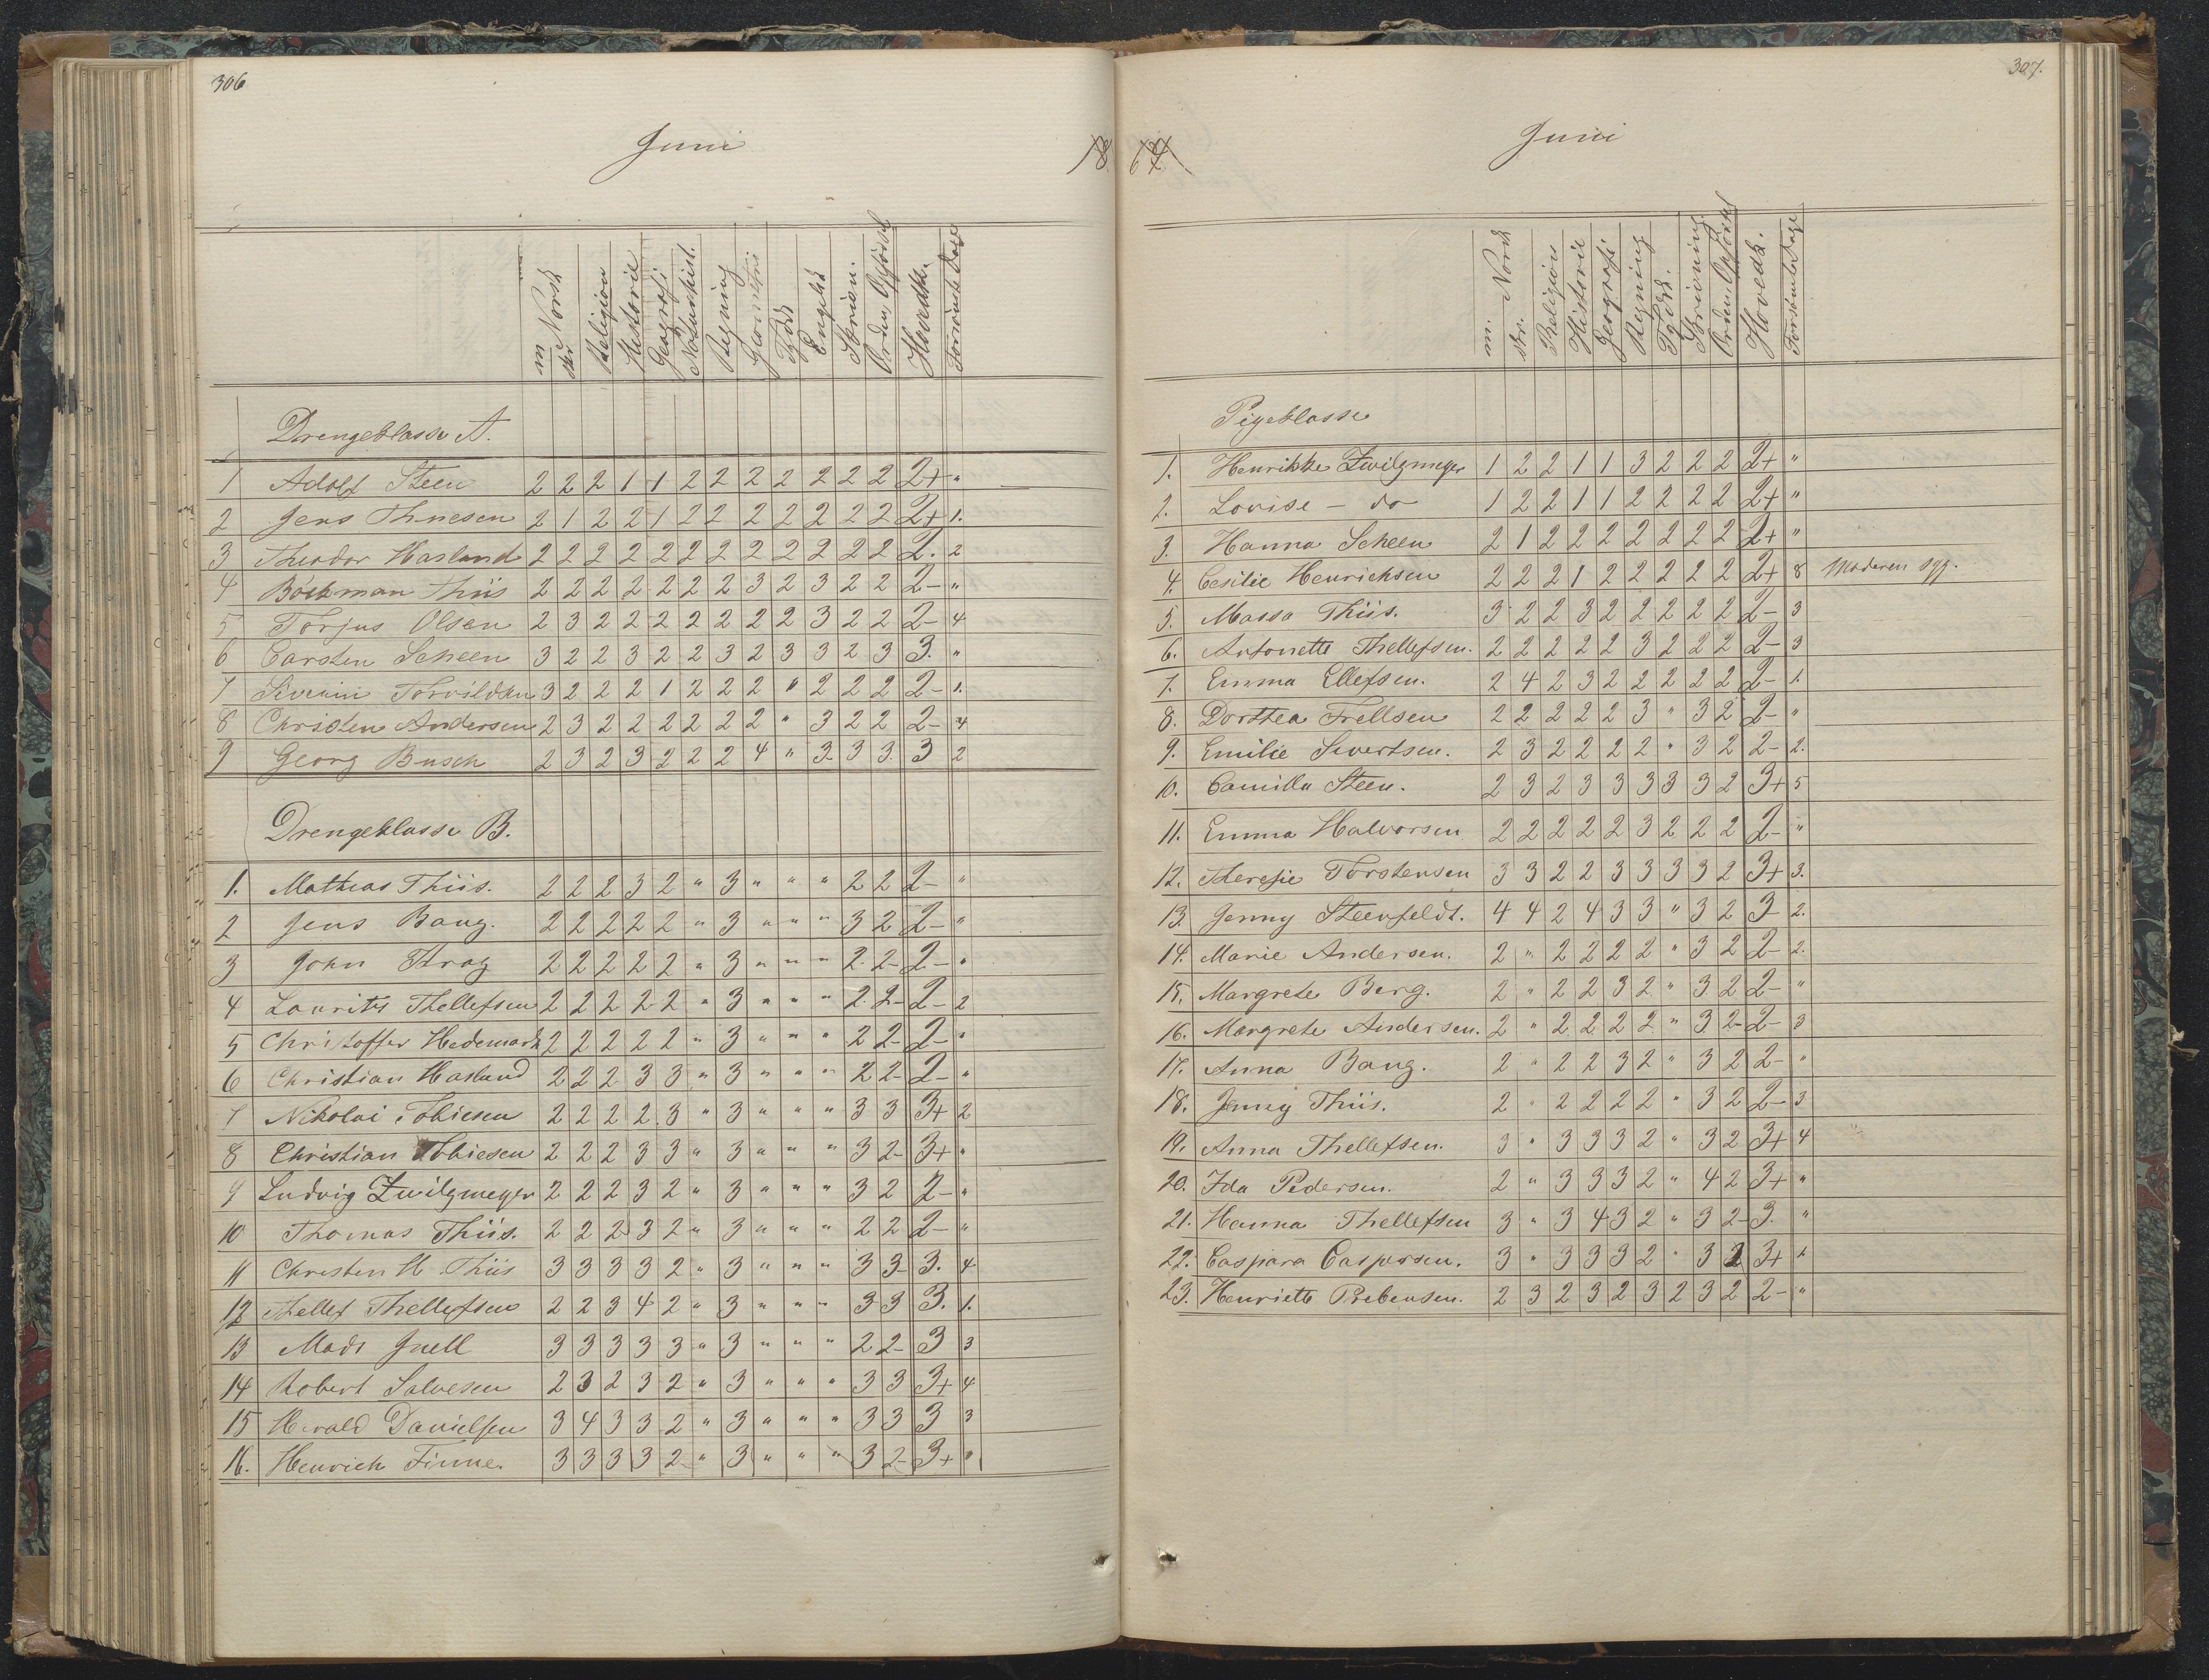 306
Juni
18
m. Norsk
skr.
Religion
Historie
Geografi
Naturhist.
Regning
Geometri
Tydsk
Engelsk
Skrivn.
Orden, Opförsel
Hovedk.
Forsömte Dage
Drengeklasse A.
1 Adolf Steen 2 2 2 1 1 2 2 2 2 2 2 2 2+ "
2 Jens Thnesen 2 1 2 2 1 2 2 2 2 2 2 2 2+ 1.
3 Theodor Hasland 2 2 2 2 2 2 2 2 2 2 2 2 2. 2
4 Böckman Thiis 2 2 2 2 2 2 2 3 2 3 2 2 2- "
5 Torjus Olsen 2 3 2 2 2 2 2 2 2 3 2 2 2- 4
6 Carsten Scheen 3 2 2 3 2 2 3 2 3 3 2 3 3. "
7 Severin Torvildsen 3 2 2 2 1 2 2 2 " 2 2 2 2- 1.
8 Christen Andersen 2 3 2 2 2 2 2 2 " 3 2 2 2- 4
9 Georg Busch 2 3 2 3 2 2 2 4 " 3 3 3. 3 2
Drengeklasse B.
1. Mathias Thiis. 2 2 2 3 2 " 3 " " " 2 2 2- "
2 Jens Bang. 2 2 2 2 2 " 3 " " " 3 2 2- "
3 John Krag 2 2 2 2 2 " 3 " " " 2. 2- 2- "
4 Laurits Thellefsen 2 2 2 2 2 " 3 " " " 2 2- 2- 2
5 Christoffer Hedemark 2 2 2 2 2 " 3 " " " 2 2- 2- "
6 Christian Hasland 2 2 2 3 3 " 3 " " " 2 2- 2- "
7 Nikolai Tobiesen 2 2 2 2 3 " 3 " " " 3 3 3+ 2
8 Christian Tobiesen 2 2 2 3 3 " 3 " " " 3 2- 3+ "
9 Ludvig Zwilgmeyer 2 2 2 3 2 " 3 " " " 3 2 2- "
10 Thomas Thiis. 2 2 2 3 2 " 3 " " " 2 2 2- "
11 Christen M Thiis 3 3 3 3 2 " 3 " " " 3 3- 3. 4
12 Thellef Thellefsen 2 2 3 4 2 " 3 " " " 3 3 3. 1.
13 Mads Juell 3 3 3 3 3 " 3 " " " 2 2- 3 3
14 Robert Salvesen 2 3 2 3 2 " 3 " " " 3 3 3+ 4
15 Harald Danielsen 3 4 3 3 2 " 3 " " " 3 3 3 3
16. Henrich Finne. 3 3 3 3 2 " 3 " " " 3 2- 3+ "
307.
Juni
64
m. Norsk
skr.
Religion
Historie
Geografi
Regning
Tydsk.
Skrivning
Orden, Opförsel
Hovedk.
Forsömte Dage
Pigeklasse
1. Henrikke Zwilgmeyer 1 2 2 1 1 3 2 2 2 2+ "
2. Lovise - do 1 2 2 1 1 2 2 2 2 2+ "
3. Hanna Scheen 2 1 2 2 2 2 2 2 2 2+ "
4. Cesilie Henrichsen 2 2 2 1 2 2 2 2 2 2+ 8 Moderen syg.
5. Massa Thiis. 3 2 2 3 2 2 2 2 2 2- 3
6. Antonette Thellefsen. 2 2 2 2 2 3 2 2 2 2- 3
7. Emma Ellefsen. 2 4 2 3 2 2 2 2 2 2- 1.
8. Dorthea Frellsen 2 2 2 2 2 3 " 3 2 2- "
9. Emilie Sivertsen. 2 3 2 2 2 2 " 3 2 2- 2.
10. Camilla Steen. 2 3 2 3 3 3 3 3 2 3+ 5
11. Emma Halvorsen 2 2 2 2 2 3 2 2 2 2- "
12. Theresie Torstensen 3 3 2 2 3 3 3 3 2 3+ 3.
13. Jenny Steenfeldt. 4 4 2 4 3 3 " 3 2 3 2.
14. Marie Andersen. 2 " 2 2 2 2 " 3 2 2- 2.
15. Margrete Berg. 2 " 2 2 3 2 " 3 2 2- "
16. Margrete Andersen. 2 " 2 2 2 2 " 3 2- 2- 3
17. Anna Bang. 2 " 2 2 3 2 " 3 2 2- "
18. Jenny Thiis. 2 " 2 2 2 2 " 3 2 2- 3
19. Anna Thellefsen. 3 " 3 3 3 2 " 3 2 3+ 4
20. Ida Pedersen. 2 " 3 3 3 2 " 4 2 3+ "
21. Hanna Thellefsen 3 " 3 4 3 2 " 3 2- 3. "
22. Caspara Caspersen. 3 " 3 3 3 2 " 3 2 3+ 1
23. Henriette Prebensen. 2 3 2 3 2 3 2 3 2 2- "